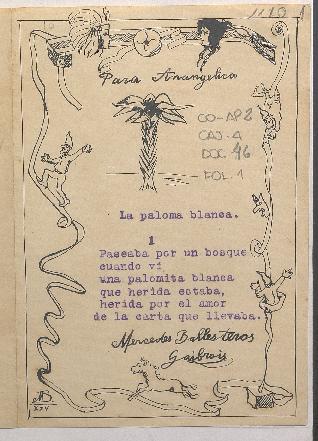 1110
Para Anangélica
CO-AP2
CAJ-4
DOC. 46
FOL. 1
La paloma blanca.
1
Paseaba por un bosque
cuando vi
una palomita blanca
que herida estaba,
herida por el amor
de la carta que llevaba.
Mercedes Ballesteros
Gaibrois
XXV